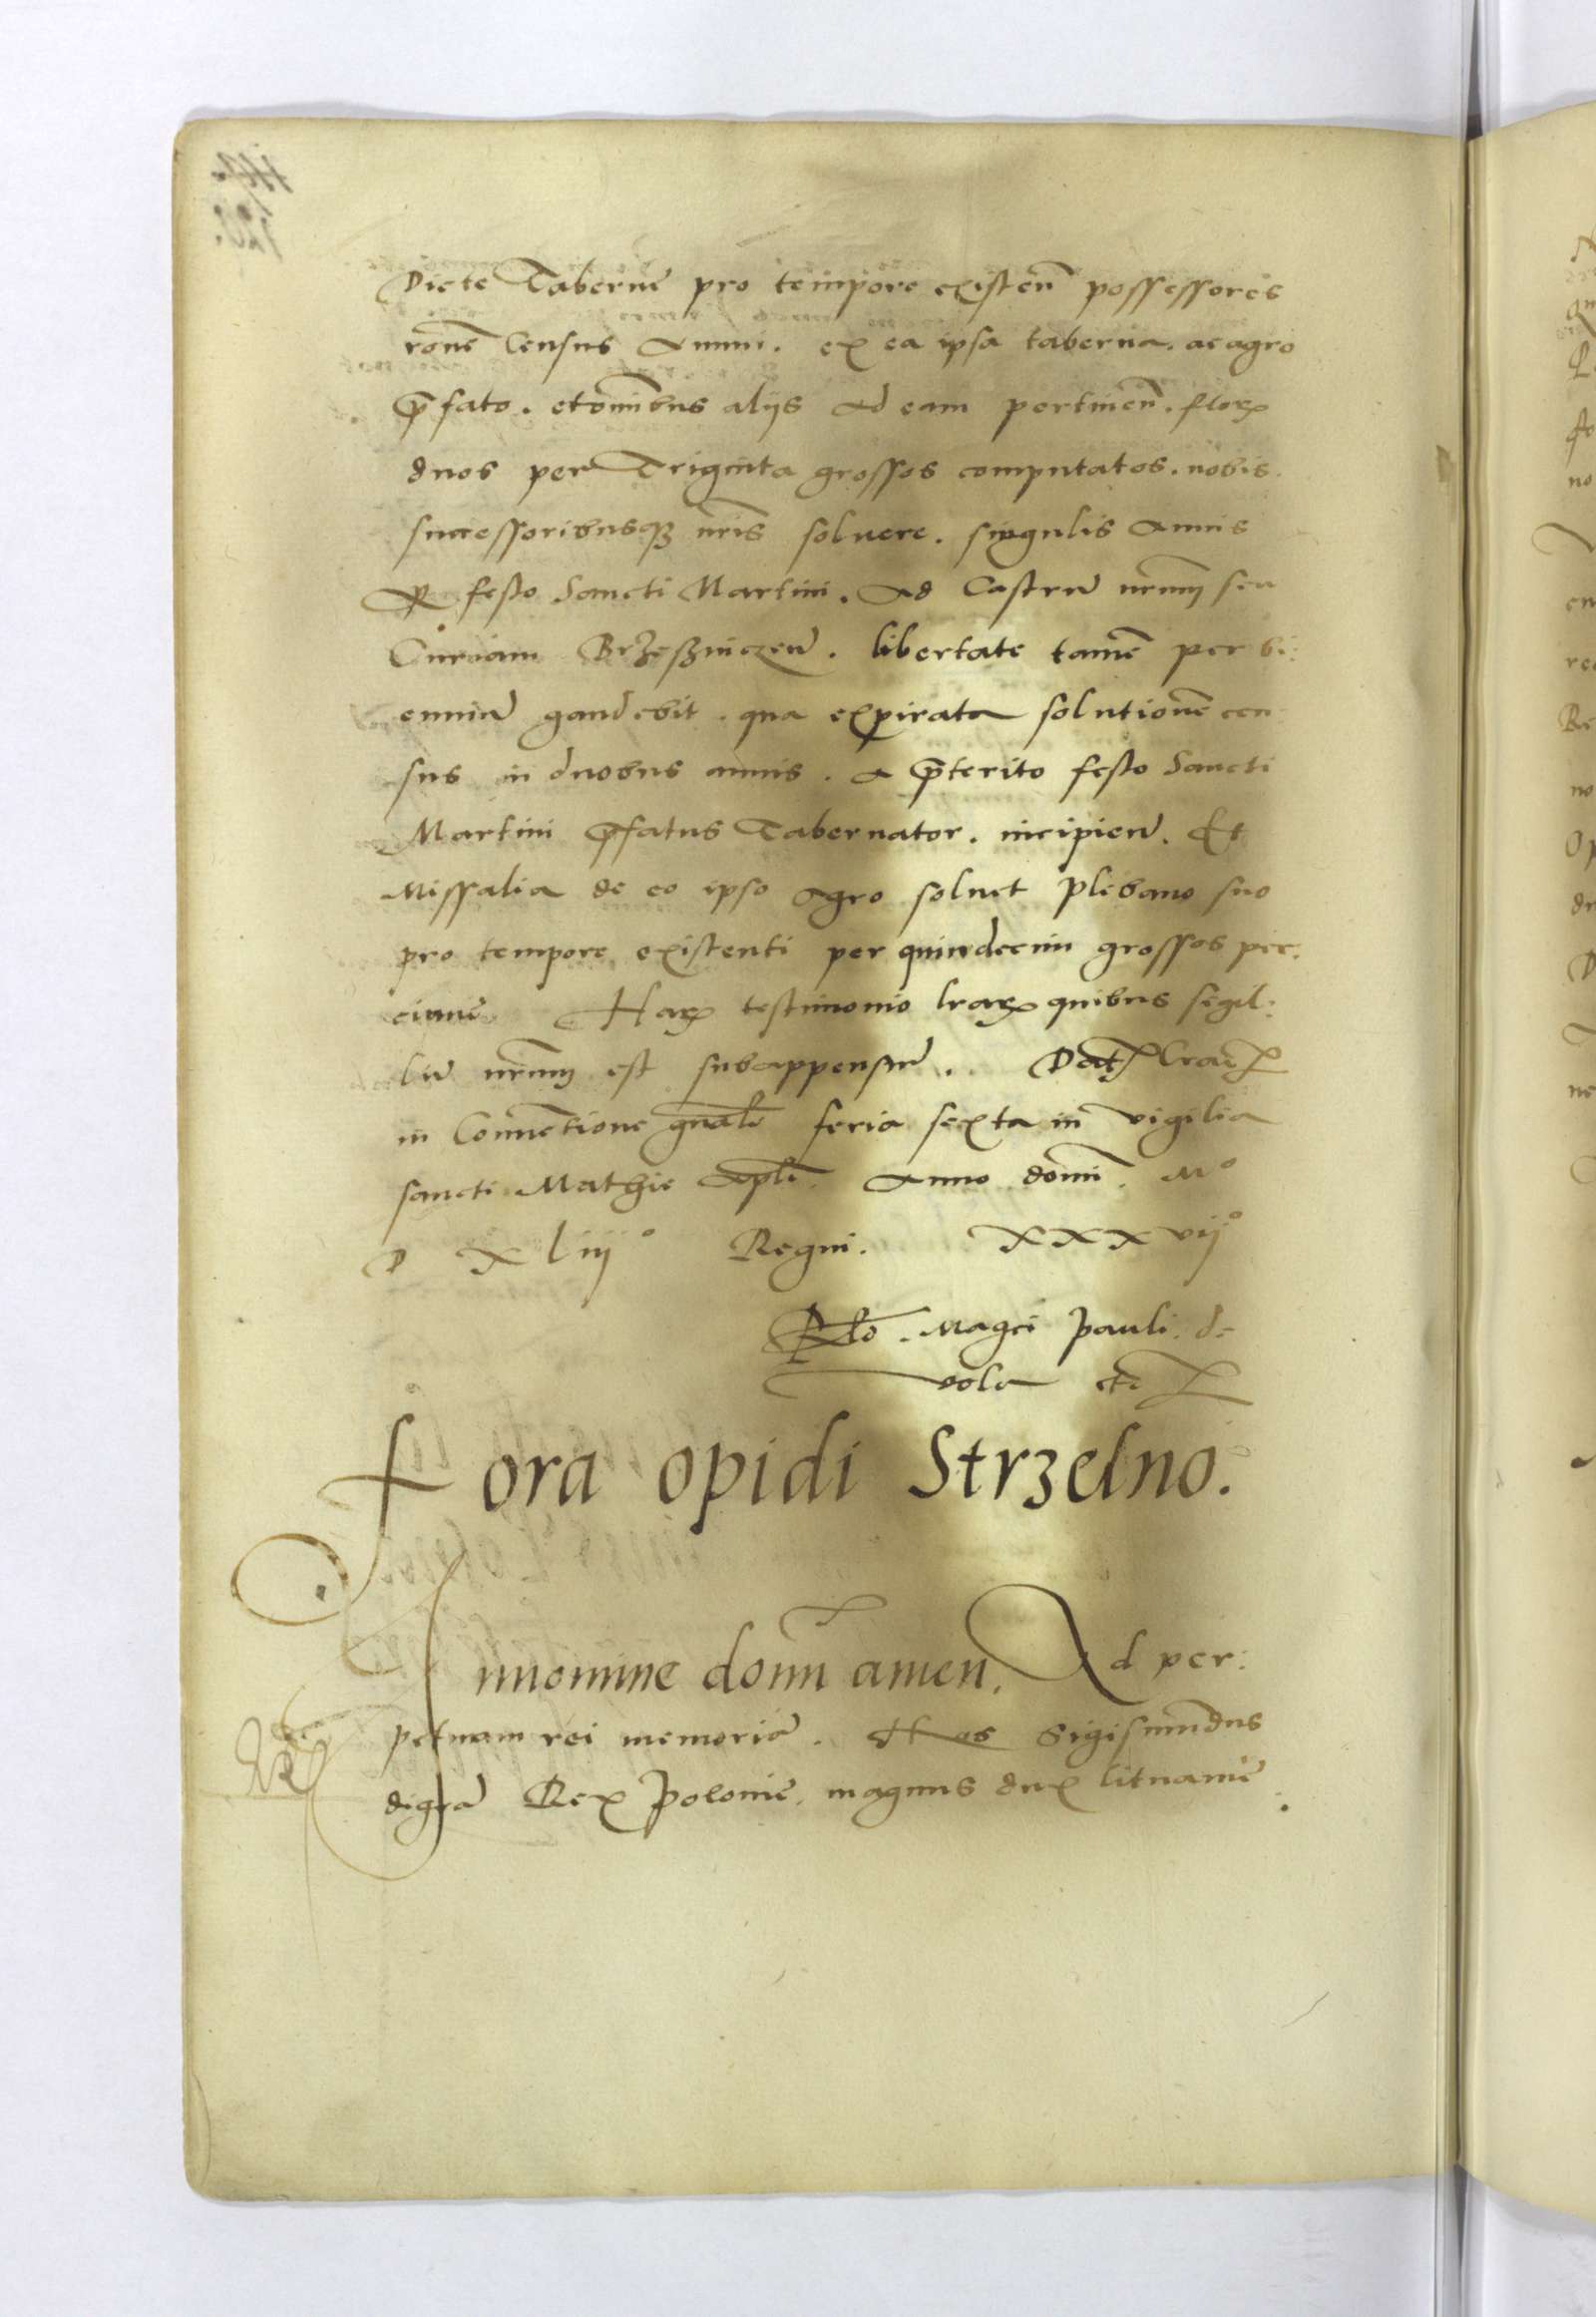 Dicte Taberne pro tempore existen̄ possessores
ronē Census Annui. ex ea ipsa taberna. ac agro
p̄fato. et om̄ibus alijs ad eam pertinen̄. floꝝ
duos per Triginta grossos computatos. nobis.
successoribusqꝫ nr̄is soluere. singulis Annis
festo Sancti Martini. Ad Castrū nr̄um seu
Curiam Brzeßniczen̄. libertate tamē per bi:
enniū gaudebit. qua expirata solutionē cen:
sus in duobus annis. a p̄terito festo Sancti
Martini p̄fatus Tabernator. incipien̄. Et
Missalia de eo ipso agro soluet plebano suo
pro tempore existenti per quindecim grossos pec:
cunie Haꝝ testimonio lr̄aꝝ quibus sigil:
lū nr̄um est subappensum̄. Dat Crac̄
in Conuētione gn̄ali feria sexta in vigilia
sancti Mathie apl̄i. Anno domī. Mº
D X L iijº Regni. XXX vijº
Rl̄o. Magci pauli. de
vola etc̄
Fora opidi Strzelno.
Innomine dom̄i amen. Ad per:
petuam rei memoriā. Nos Sigismundus
digrā Rex polonie. magnus dux lituanie